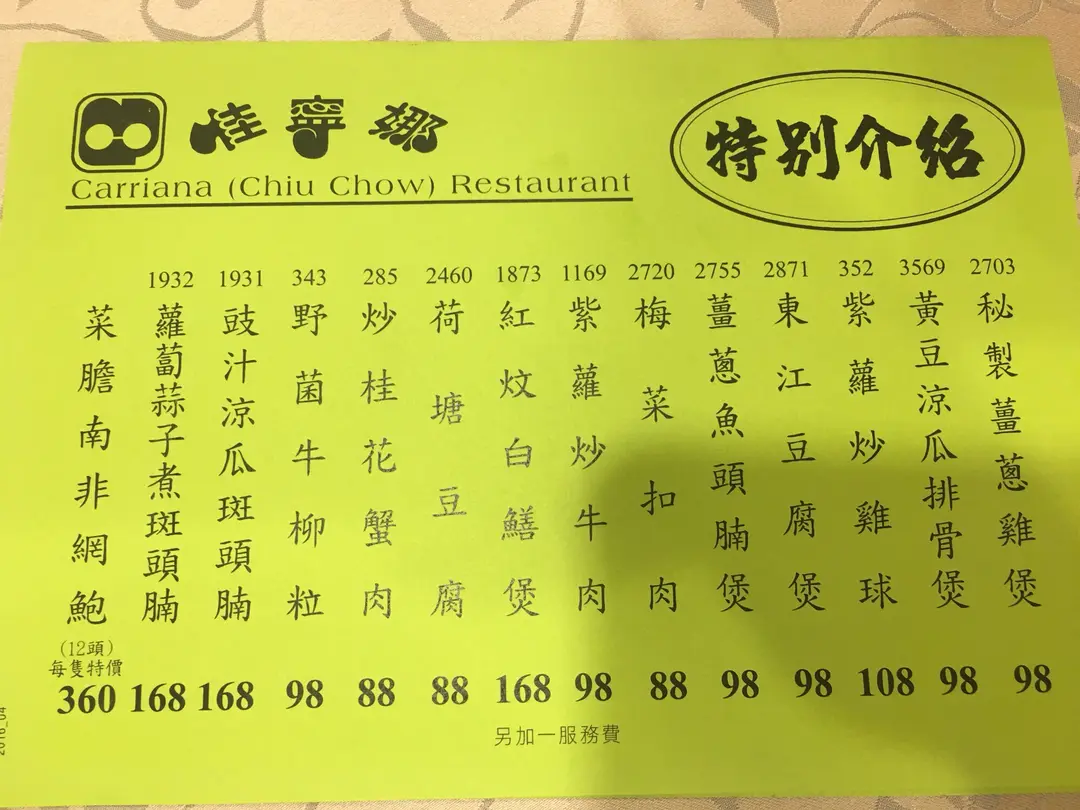 佳寧娜
Carriana (Chiu Chow) Restaurant
特別介紹
2703
秘製薑蔥雞煲
98
3569
黃豆涼瓜排骨煲
98
352
紫蘿炒雞球
108
2871
東江豆腐煲
98
2755
薑蔥魚頭腩煲
98
2720
梅菜扣肉
88
1169
紫蘿炒牛肉
98
1873
紅炆白鱔煲
168
2460
荷塘豆腐
88
285
炒桂花蟹肉
88
343
野菌牛柳粒
98
1931
豉汁涼瓜斑頭腩
168
1932
蘿蔔蒜子煮斑頭腩
168
菜膽南非網鮑
(12頭)
每隻特價
360
另加一服務費
2016_04